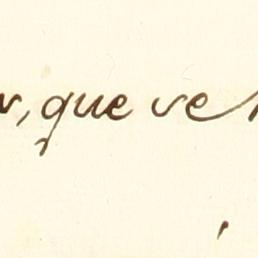 , que ve